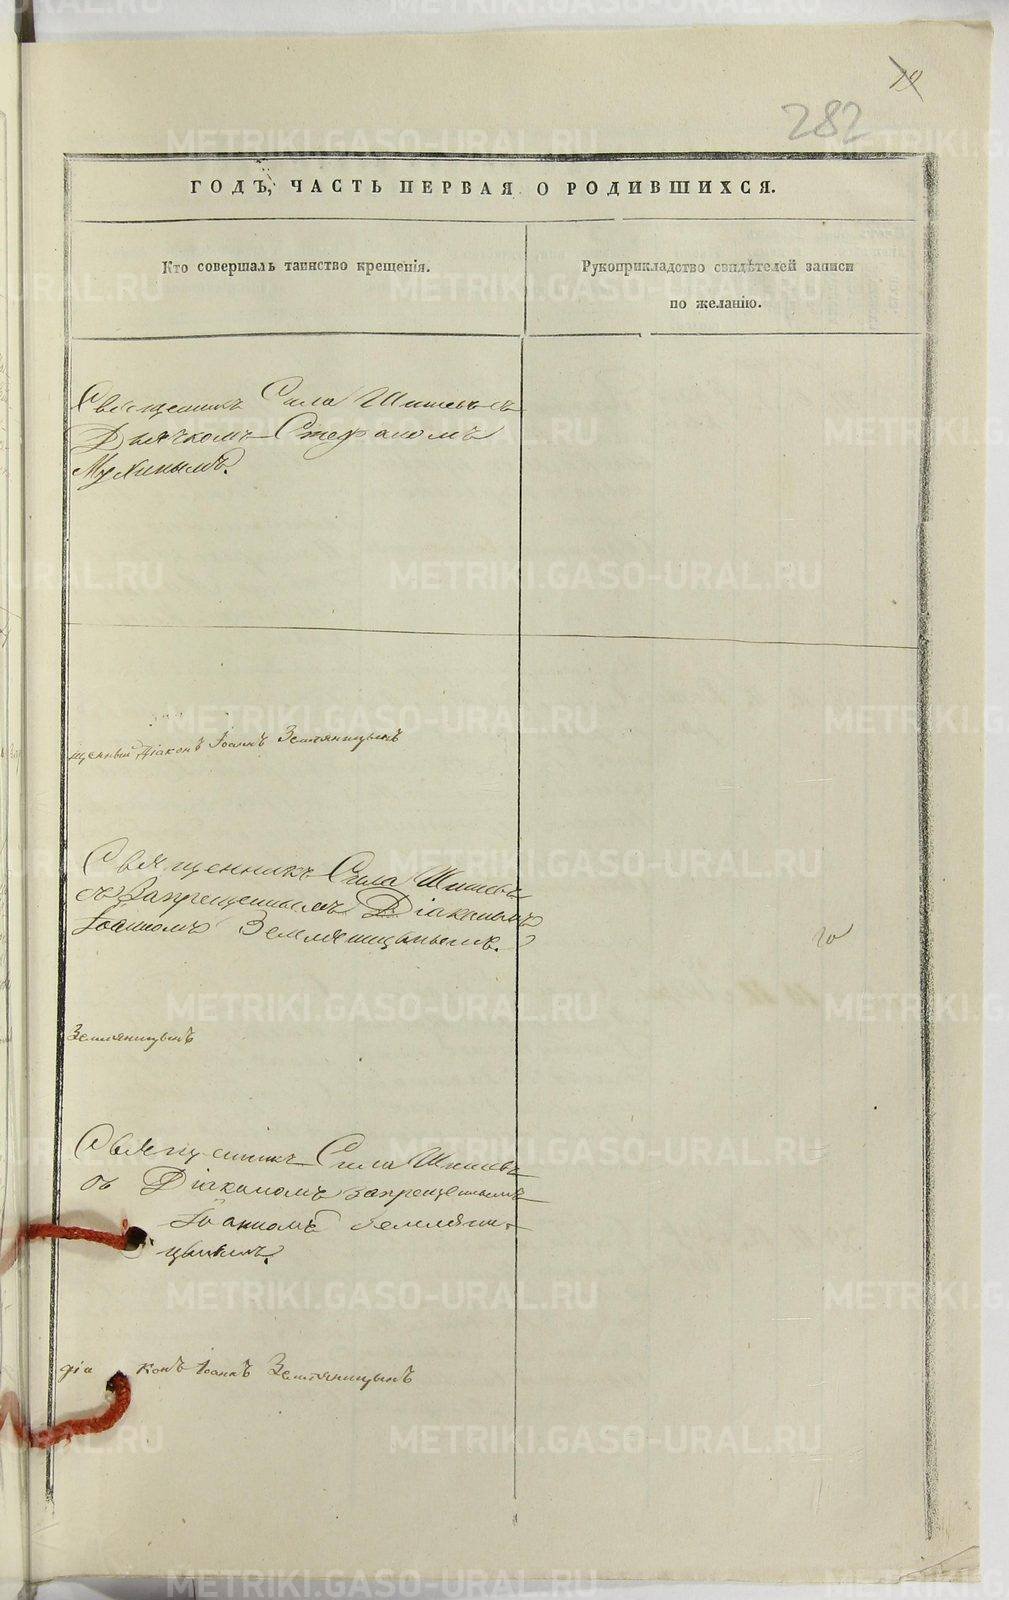 282
ГОДЪ, ЧАСТЬ ПЕРВАЯ О РОДИВШИХСЯ.
Кто совершалъ таинство крещенія.
Рукоприкладство свидѣтелей записи
по желанію.
Священникъ Сила Шишевъ съ
Дьячкомъ Стефаномъ
Мухинымъ.
щенный Діаконъ Іоаннъ Земляницынъ
Священникъ Сила Шишевъ
съ Запрещеннымъ Діакономъ
Іоанномъ Земляницынымъ.
Земляницынъ
Священникъ Сила Шишевъ
съ Діакономъ запрещеннымъ
Іоанномъ Земляни-
цынымъ.
діа конъ Іоаннъ Земляницынъ
METRIKI.GASO-URAL.RU